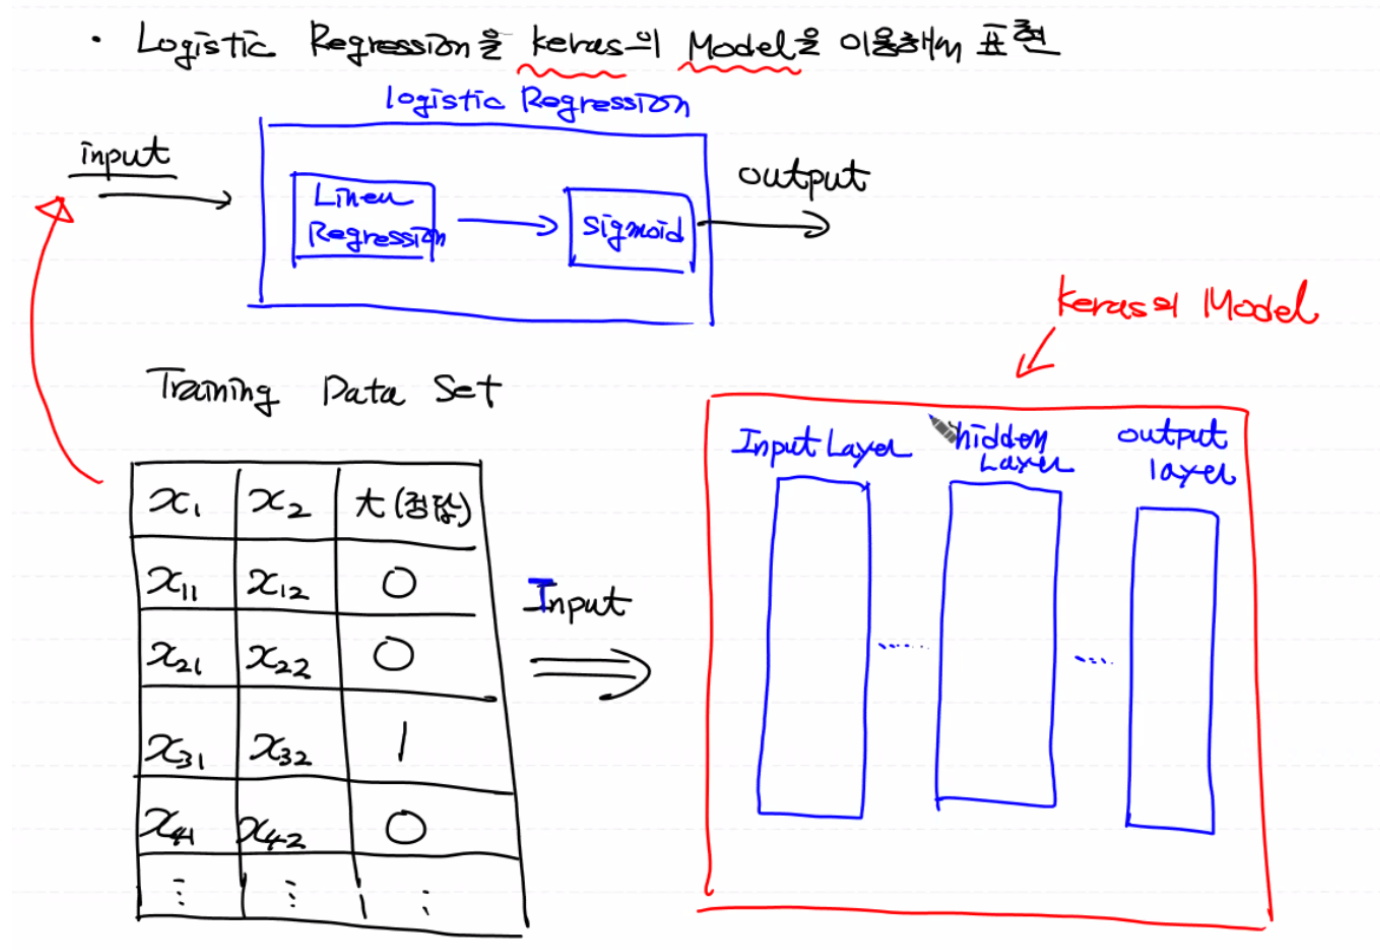 · Logistic Regression을 keras의 Model을 이용해서 표현
logistic Regression
input
Linear
Regression
sigmoid
output
keras의 Model
Training Data Set
x₁ x₂ t(정답)
x₁₁ x₁₂ 0
x₂₁ x₂₂ 0
x₃₁ x₃₂ 1
x₄₁ x₄₂ 0
⋮ ⋮ ⋮
Input
Input Layer
hidden
Layer
output
layer